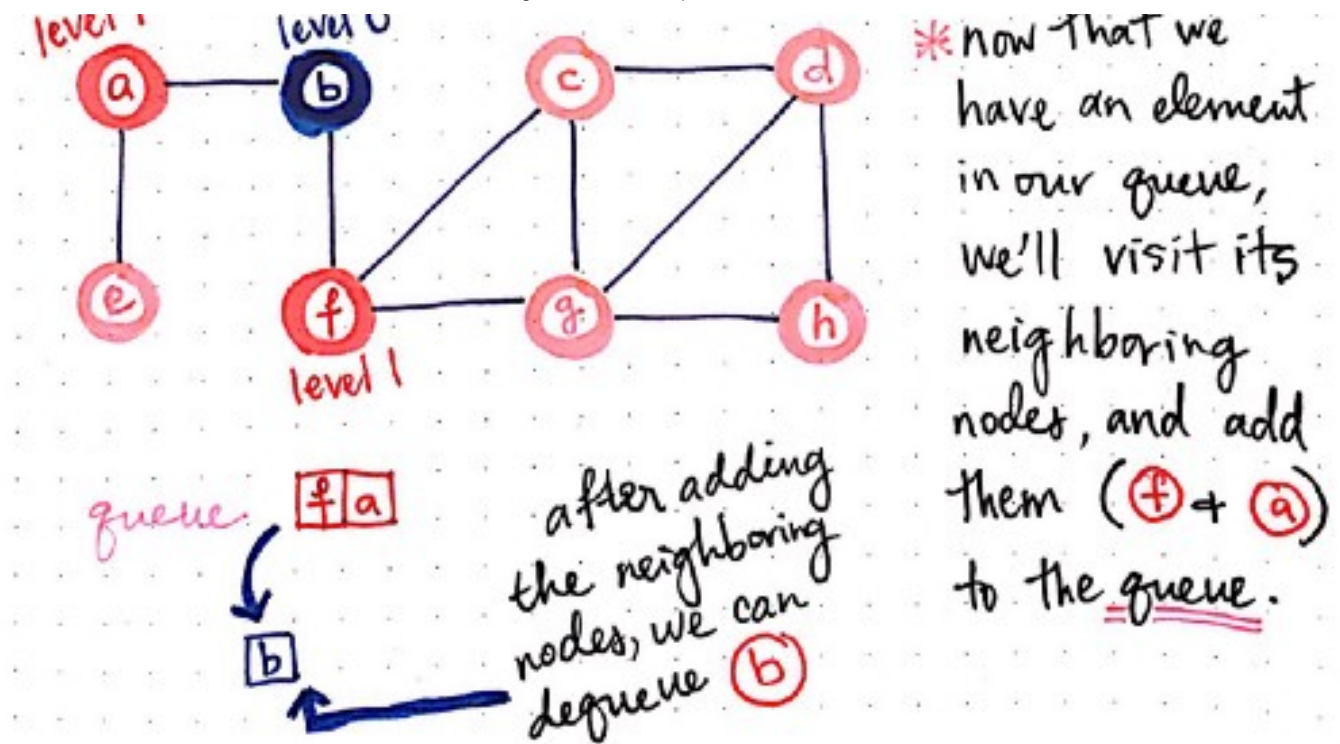 level 1
level 0
a
b
c
d
e
f
g
h
level 1
queue
f a
b
after adding
the neighboring
nodes, we can
dequeue b
* now that we
have an element
in our queue,
we'll visit its
neighboring
nodes, and add
them (f + a)
to the queue.